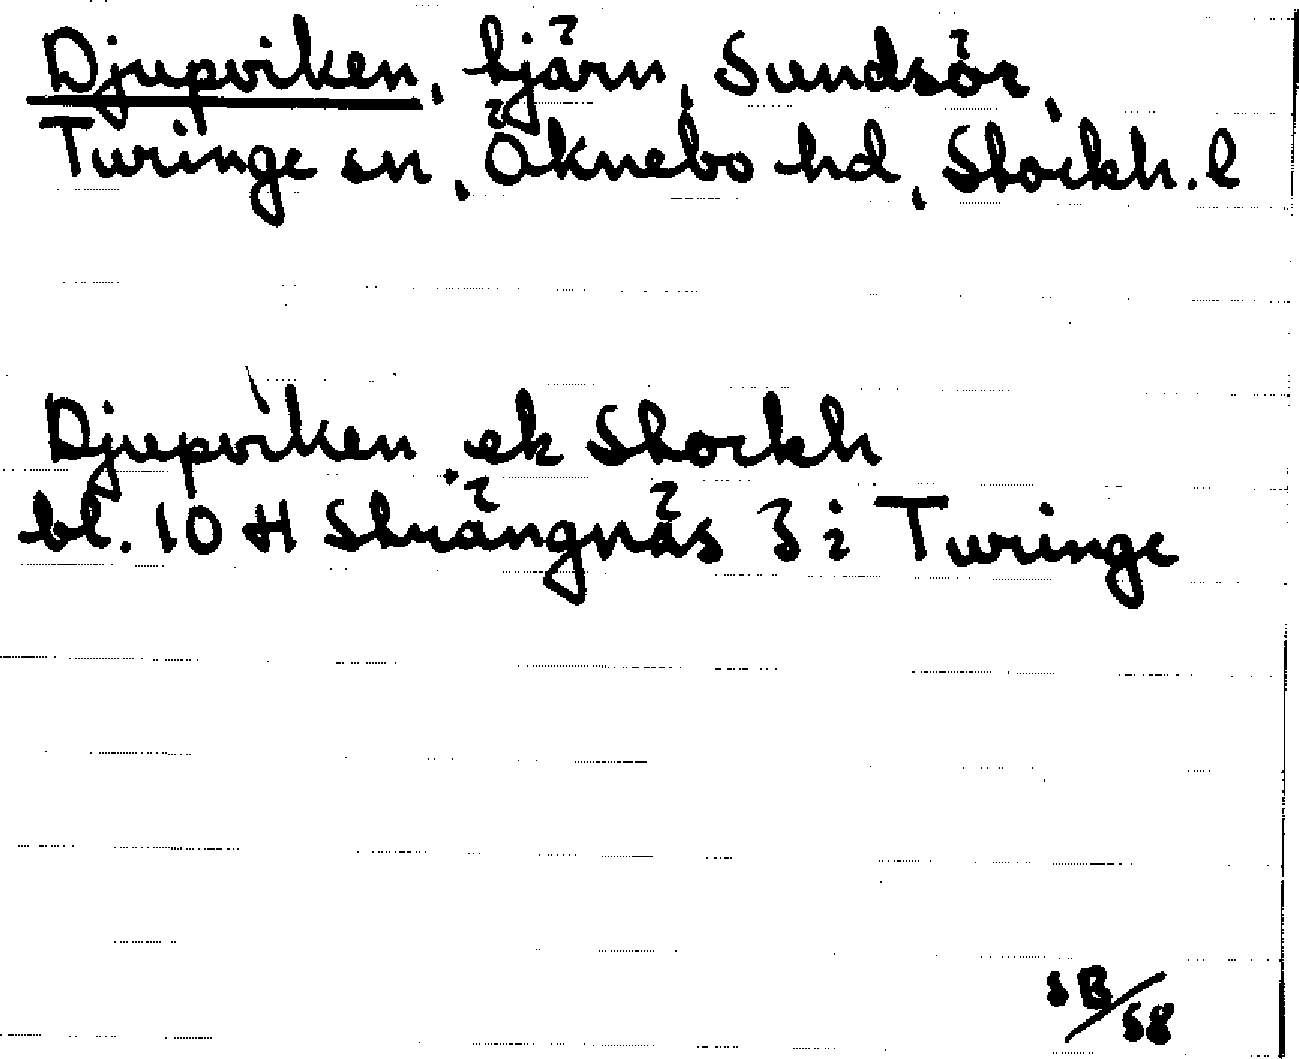 Djupviken, fjärn, Sundsör,
Turinge sn, Öknebo hd, Stockh. l
Djupviken ek Stockh
bl. 10 H Strängnäs 3 i Turinge
SB/58